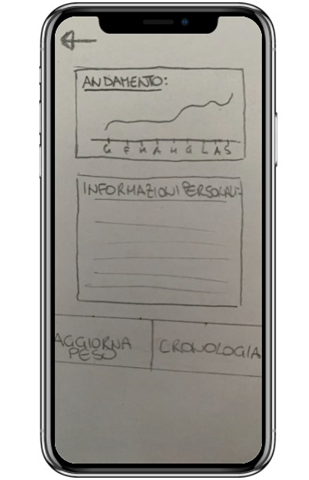 ANDAMENTO:
G F M A M G L A S
INFORMAZIONI PERSONALI:
AGGIORNA
PESO
CRONOLOGIA